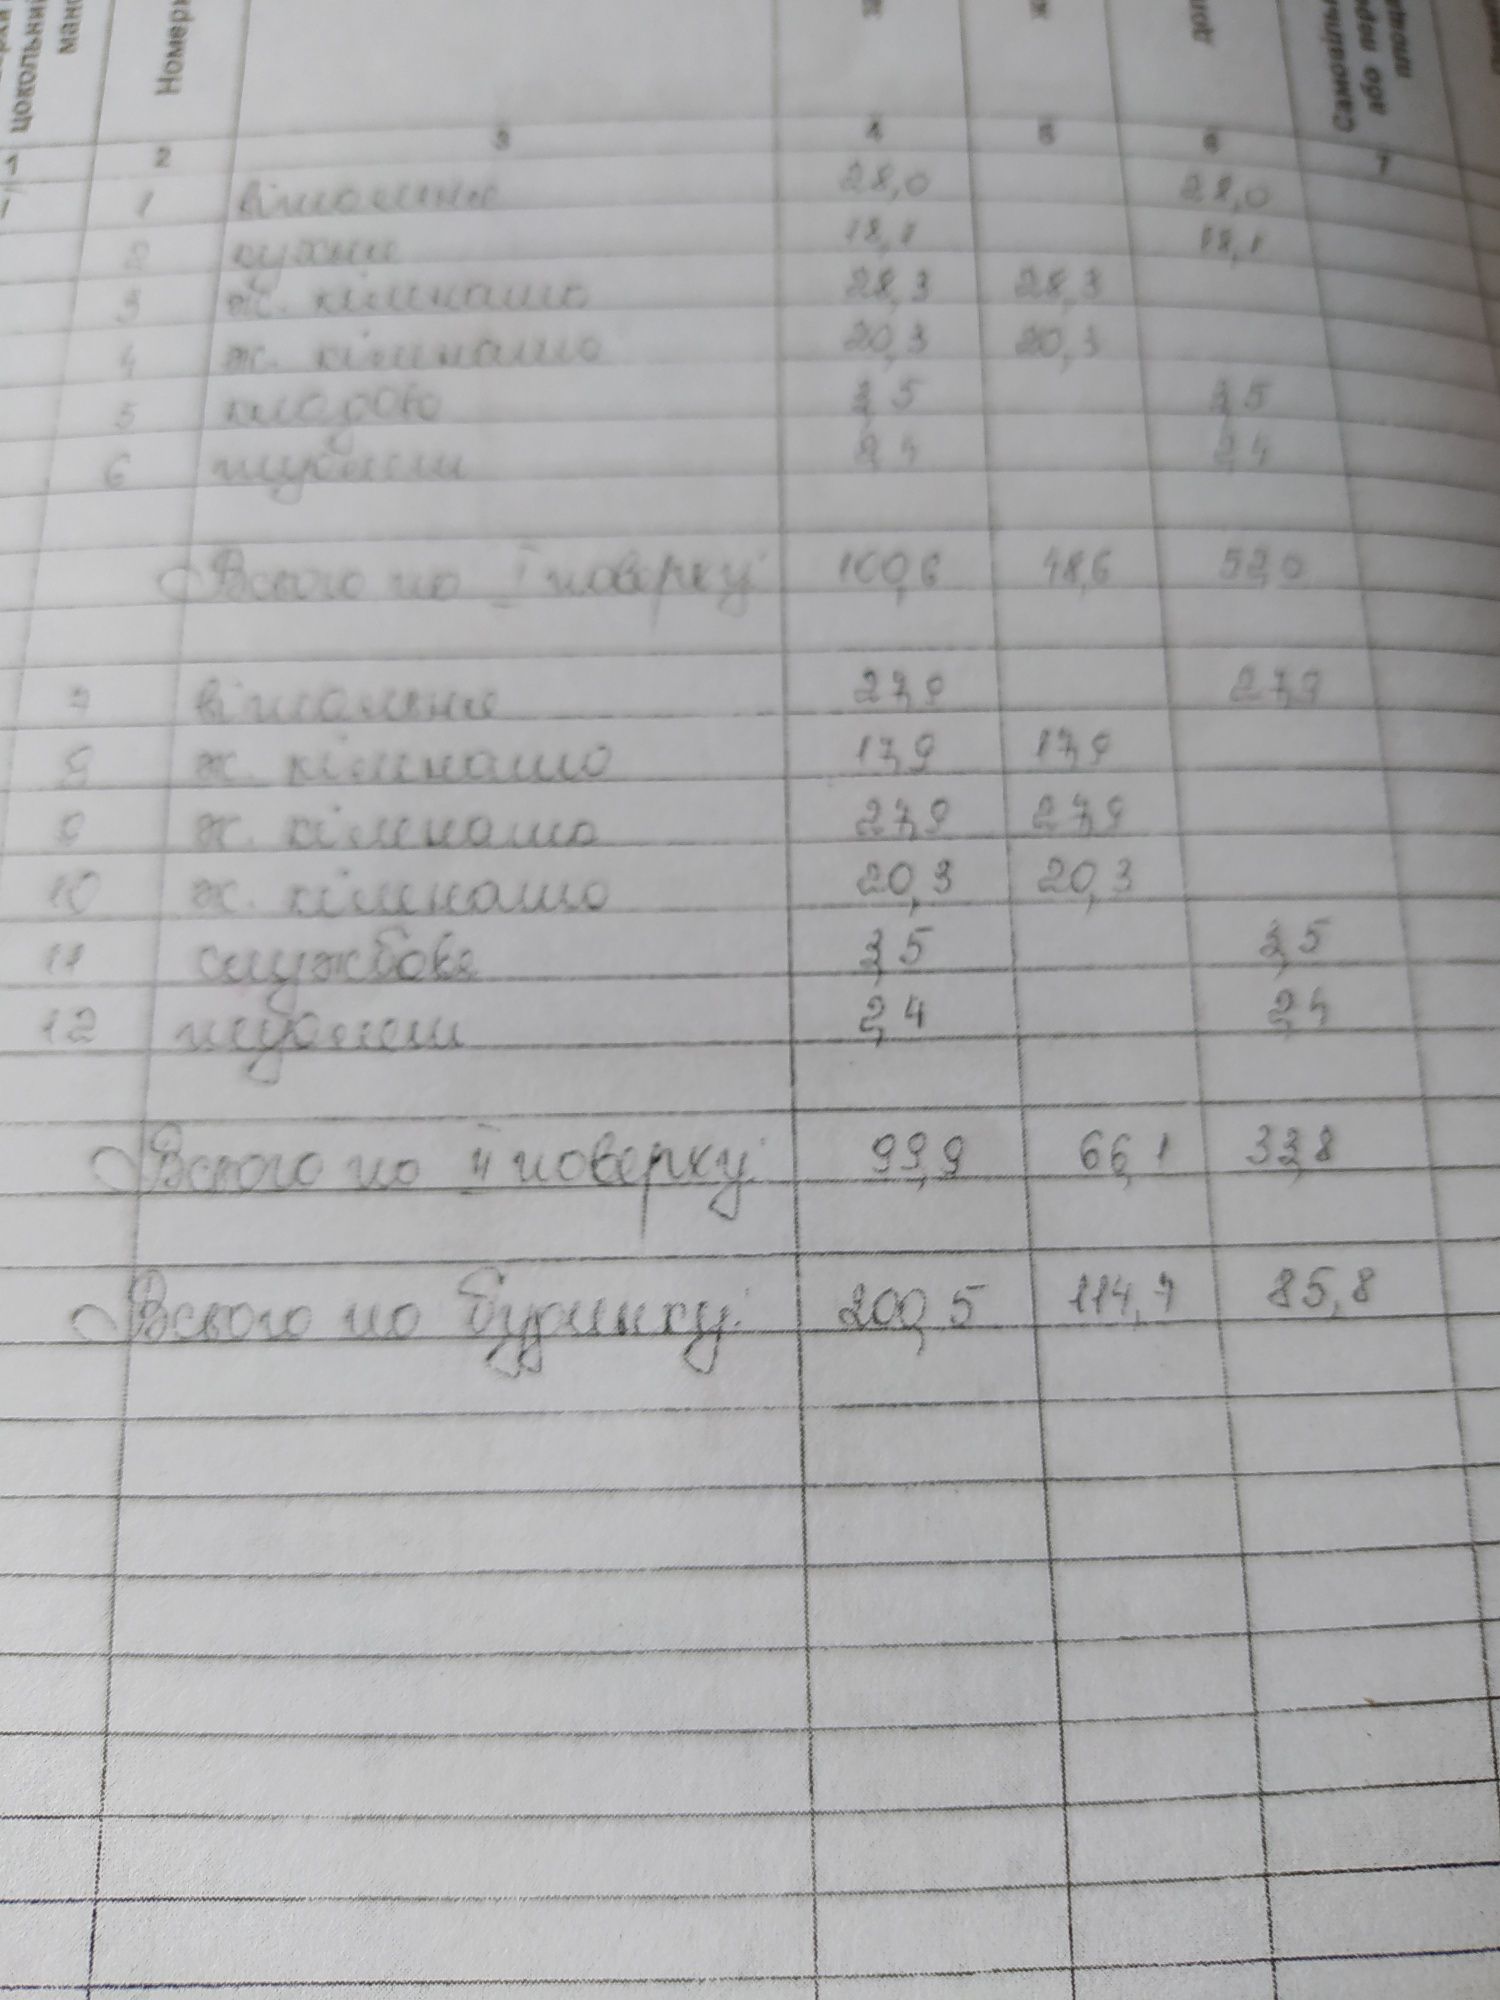 цокольний
Номери
Самовільно
2 3 4 5 6 7
1 вітальня 28,0 28,0
2 кухня 18,1 18,1
3 ж. кімната 28,3 28,3
4 ж. кімната 20,3 20,3
5 кладова 3,5 3,5
6 туалет 2,4 2,4
Всього по I поверху: 100,6 48,6 52,0
7 вітальня 27,9 27,9
8 ж. кімната 17,9 17,9
9 ж. кімната 27,9 27,9
10 ж. кімната 20,3 20,3
11 службове 3,5 3,5
12 туалет 2,4 2,4
Всього по II поверху: 99,9 66,1 33,8
Всього по будинку: 200,5 114,7 85,8